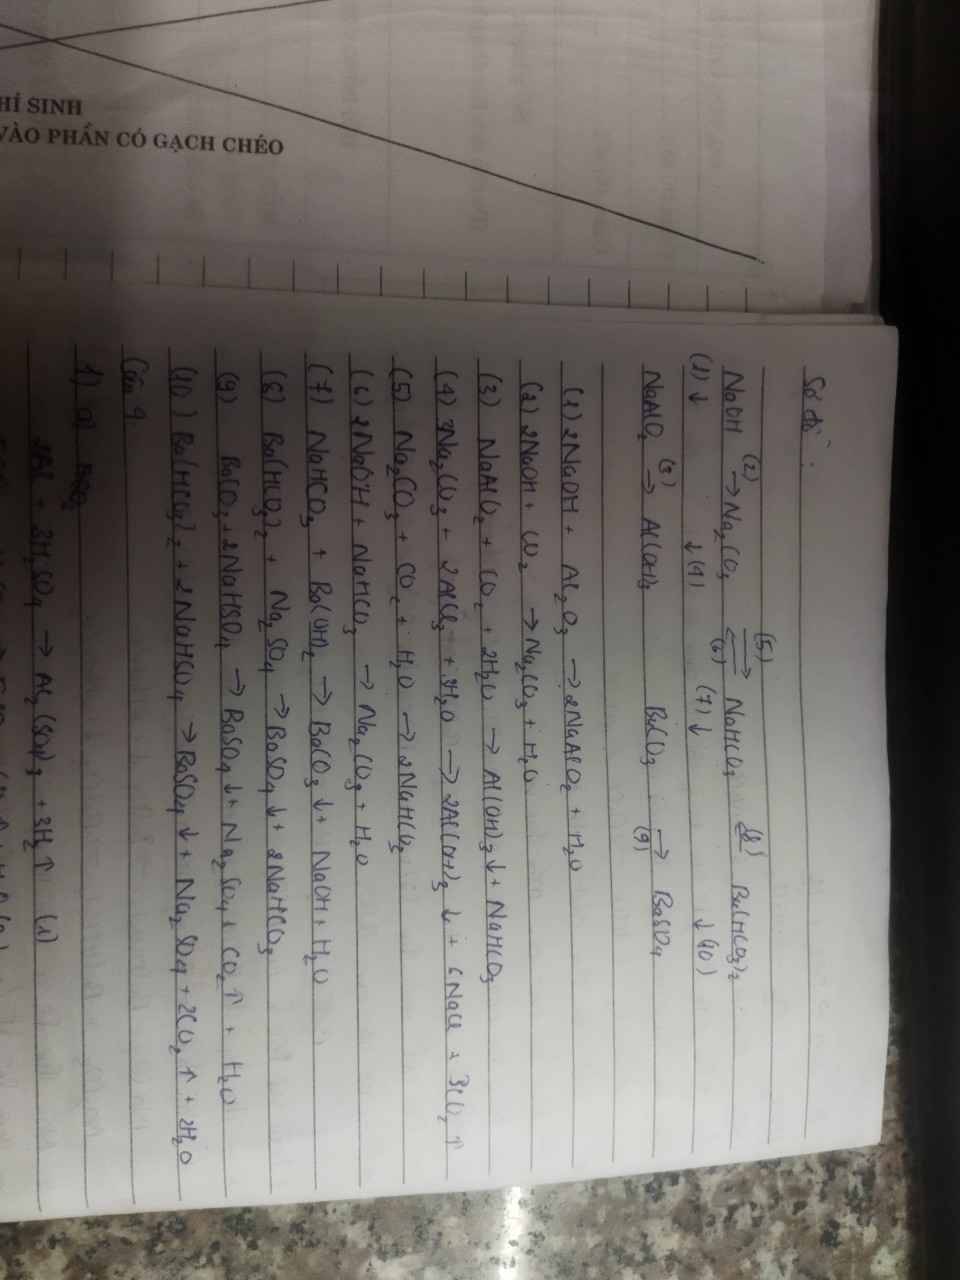 HÍ SINH
VÀO PHẦN CÓ GẠCH CHÉO
Sơ đồ:
NaOH (2) → Na₂CO₃ (5) ⇌ (6) NaHCO₃ (8) → Ba(HCO₃)₂
(1) ↓ ↓ (4) (7) ↓ ↓ (10)
NaAlO₂ (3) → Al(OH)₃ BaCO₃ → (9) BaSO₄
(1) 2NaOH + Al₂O₃ → 2NaAlO₂ + H₂O
(2) 2NaOH + CO₂ → Na₂CO₃ + H₂O
(3) NaAlO₂ + CO₂ + 2H₂O → Al(OH)₃↓ + NaHCO₃
(4) 3Na₂CO₃ + 2AlCl₃ + 3H₂O → 2Al(OH)₃ ↓ + 6NaCl + 3CO₂ ↑
(5) Na₂CO₃ + CO₂ + H₂O → 2NaHCO₃
(6) 2NaOH + NaHCO₃ → Na₂CO₃ + H₂O
(7) NaHCO₃ + Ba(OH)₂ → BaCO₃ ↓ + NaOH + H₂O
(8) Ba(HCO₃)₂ + Na₂SO₄ → BaSO₄ ↓ + 2NaHCO₃
(9) BaCO₃ + 2NaHSO₄ → BaSO₄ ↓ + Na₂SO₄ + CO₂ ↑ + H₂O
(10) Ba(HCO₃)₂ + 2NaHSO₄ → BaSO₄ ↓ + Na₂SO₄ + 2CO₂ ↑ + 2H₂O
Câu 9
1) a)
2Al + 3H₂SO₄ → Al₂(SO₄)₃ + 3H₂↑ (1)